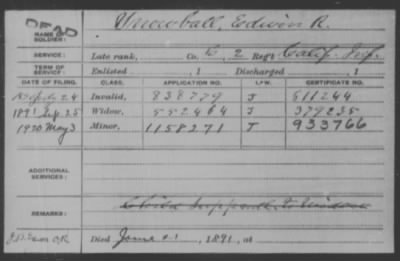 DEAD
NAME OF SOLDIER: Snowball, Edwin R.
SERVICE: Late rank, Co. B, 2 Reg't Calif. Inf.
TERM OF SERVICE: Enlisted , 1 Discharged , 1
DATE OF FILING. CLASS. APPLICATION NO. LAW. CERTIFICATE NO.
24 Invalid, 838779 J 511244
1891 Sep. 25 Widow, 552464 J 379235
1920 May 3 Minor, 1158271 T 933766
ADDITIONAL SERVICES:
REMARKS:
Died June 21, 1891, at